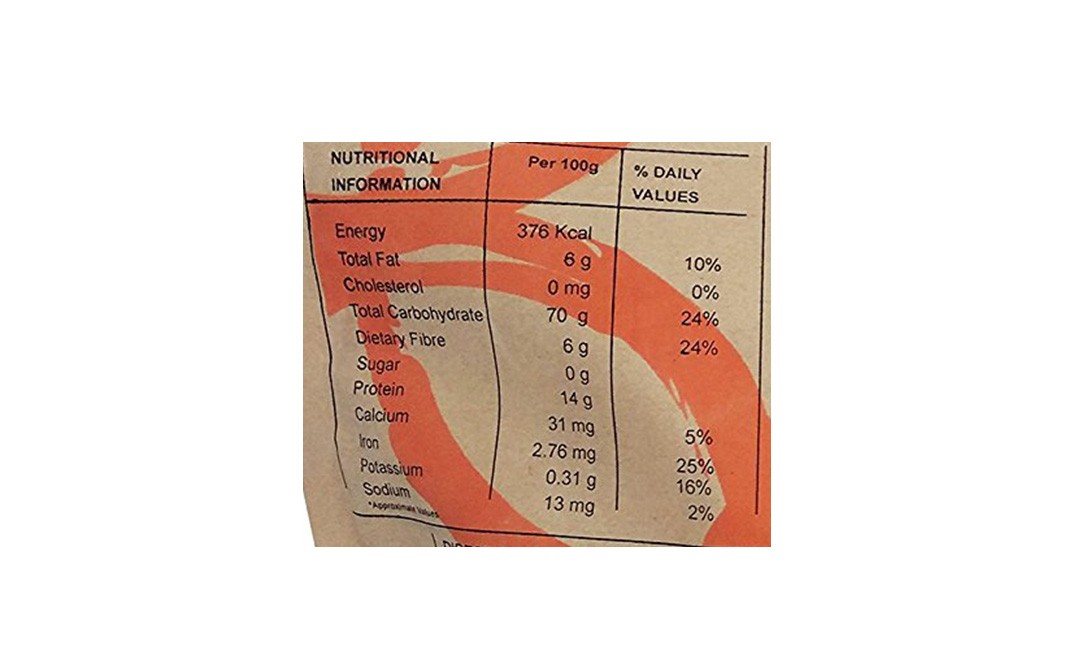 NUTRITIONAL INFORMATION Per 100g % DAILY VALUES
Energy 376 Kcal
Total Fat 6 g 10%
Cholesterol 0 mg 0%
Total Carbohydrate 70 g 24%
Dietary Fibre 6 g 24%
Sugar 0 g
Protein 14 g
Calcium 31 mg 5%
Iron 2.76 mg 25%
Potassium 0.31 g 16%
Sodium 13 mg 2%
*Approximate Values